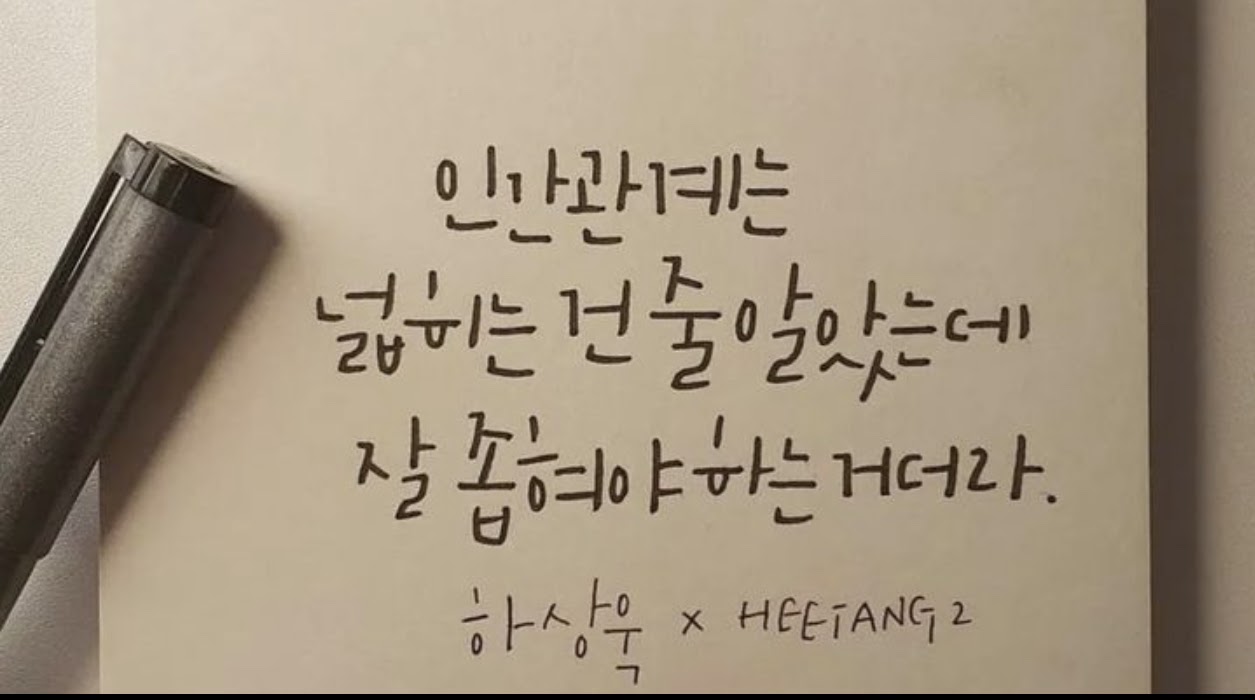 인간관계는
넓히는 건 줄 알았는데
잘 좁혀야 하는 거더라.
하상욱 x HEETANG2